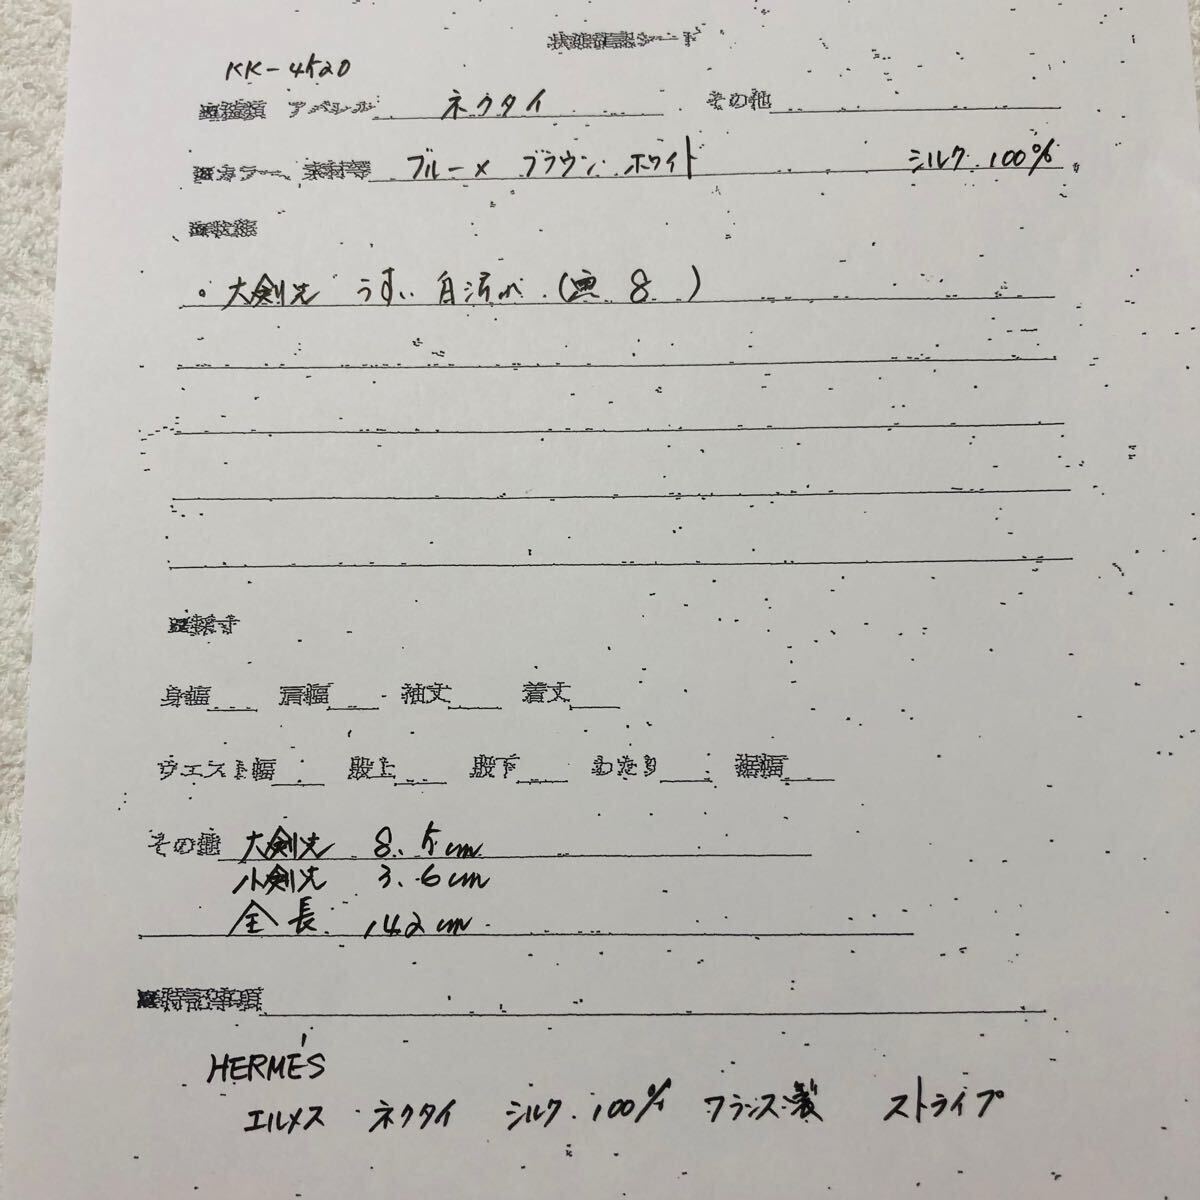 状態確認シート
KK-4520
■種類 アパレル ネクタイ その他
■カラー、素材等 ブルー× ブラウン ホワイト シルク 100%
■状態
・大剣先 うすい 白汚れ (画 8 )
■採寸
身幅 肩幅 袖丈 着丈
ウエスト幅 股上 股下 わたり 裾幅
その他 大剣先 8.5cm
小剣先 3.6cm
全長 142cm
■特記事項
HERMÉS
エルメス ネクタイ シルク 100% フランス製 ストライプ